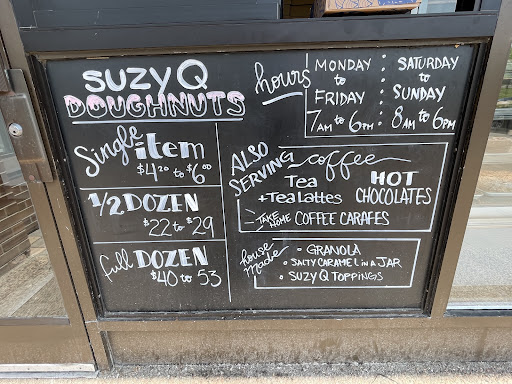 SUZY Q
DOUGHNUTS
Single item
$4.20 to $6.00
1/2 DOZEN
$22 to $29
full DOZEN
$40 to 53
hours
MONDAY
to
FRIDAY
7AM to 6PM
SATURDAY
to
SUNDAY
8AM to 6PM
ALSO
SERVING
coffee
Tea
+Tea lattes
HOT
CHOCOLATES
TAKE HOME COFFEE CARAFES
house made
• GRANOLA
• SALTY CARAMEL IN A JAR
• SUZY Q TOPPINGS